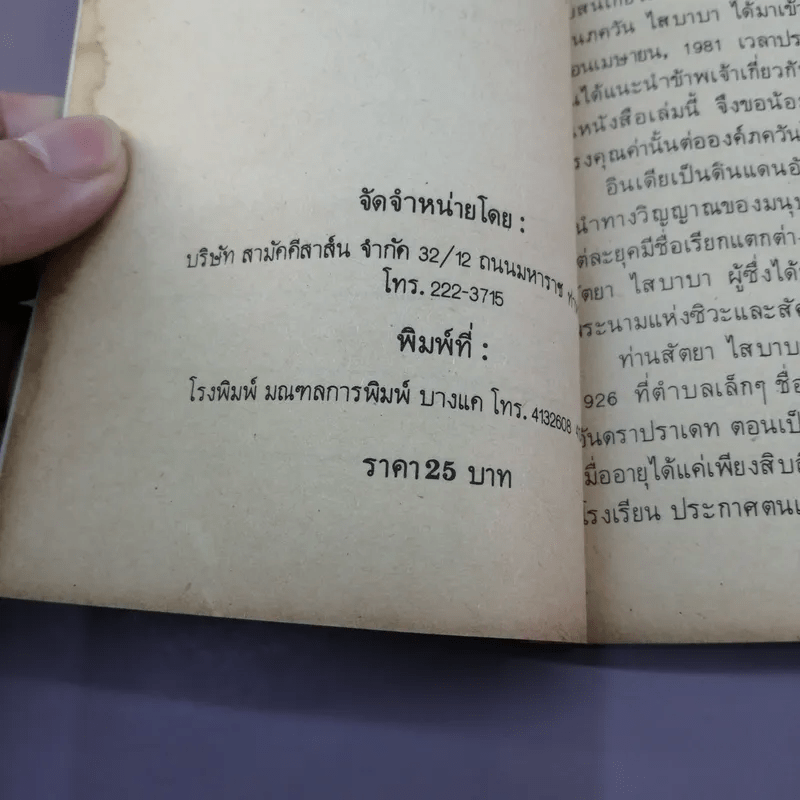 จัดจำหน่ายโดย :
บริษัท สามัคคีสาส์น จำกัด 32/12 ถนนมหาราช
โทร. 222-3715
พิมพ์ที่ :
โรงพิมพ์ มณฑลการพิมพ์ บางแค โทร. 4132608
ราคา 25 บาท
ไสบาบา ได้มาเข้า
อนเมษายน, 1981 เวลาประ
ได้แนะนำข้าพเจ้าเกี่ยวกับ
หนังสือเล่มนี้ จึงขอน้อ
รงคุณค่านั้นต่อองค์ภควัน
อินเดียเป็นดินแดนอั
นำทางวิญญาณของมนุษ
ต่ละยุคมีชื่อเรียกแตกต่าง
ัตยา ไสบาบา ผู้ซึ่งได้
ระนามแห่งซิวะและสั
ท่านสัตยา ไสบาบ
926 ที่ตำบลเล็กๆ ชื่อ
ันดราปราเดท ตอนเป็
มื่ออายุได้แค่เพียงสิบสี
โรงเรียน ประกาศตนเ